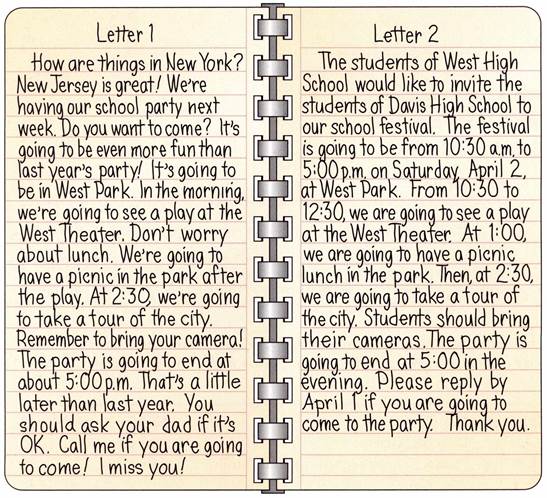 Letter 1
How are things in New York?
New Jersey is great! We're
having our school party next
week. Do you want to come? It's
going to be even more fun than
last year's party! It's going to
be in West Park. In the morning,
we're going to see a play at the
West Theater. Don't worry
about lunch. We're going to
have a picnic in the park after
the play. At 2:30, we're going
to take a tour of the city.
Remember to bring your camera!
The party is going to end at
about 5:00 p.m. That's a little
later than last year. You
should ask your dad if it's
OK. Call me if you are going
to come! I miss you!
Letter 2
The students of West High
School would like to invite the
students of Davis High School to
our school festival. The festival
is going to be from 10:30 a.m. to
5:00 p.m. on Saturday, April 2,
at West Park. From 10:30 to
12:30, we are going to see a play
at the West Theater. At 1:00,
we are going to have a picnic
lunch in the park. Then, at 2:30,
we are going to take a tour of
the city. Students should bring
their cameras. The party is
going to end at 5:00 in the
evening. Please reply by
April 1 if you are going to
come to the party. Thank you.